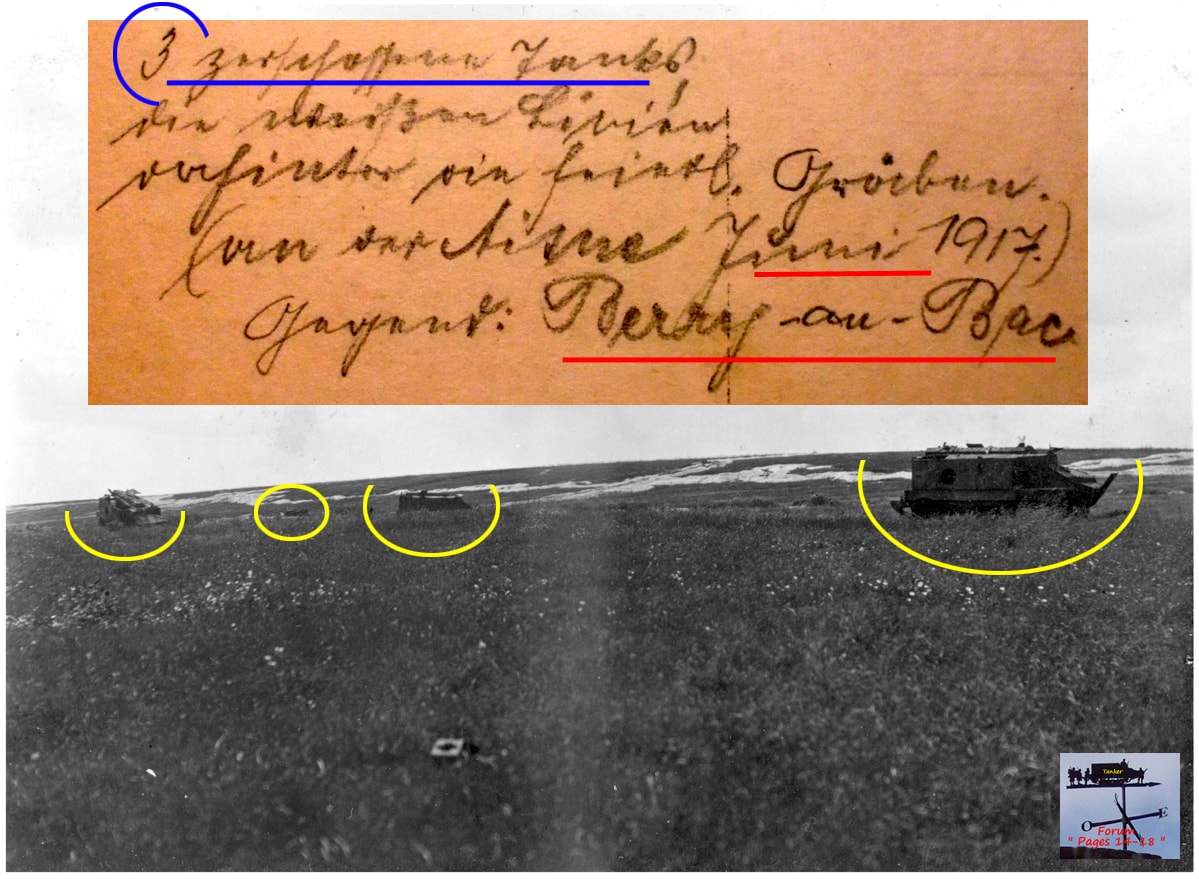 3 zerschossene Tanks
die weißen Linien
dahinter die feindl. Gräben.
(an der Aisne Juni 1917.)
Gegend: Berry-au-Bac
Tanker
O E
Forum
" Pages 14-18 "